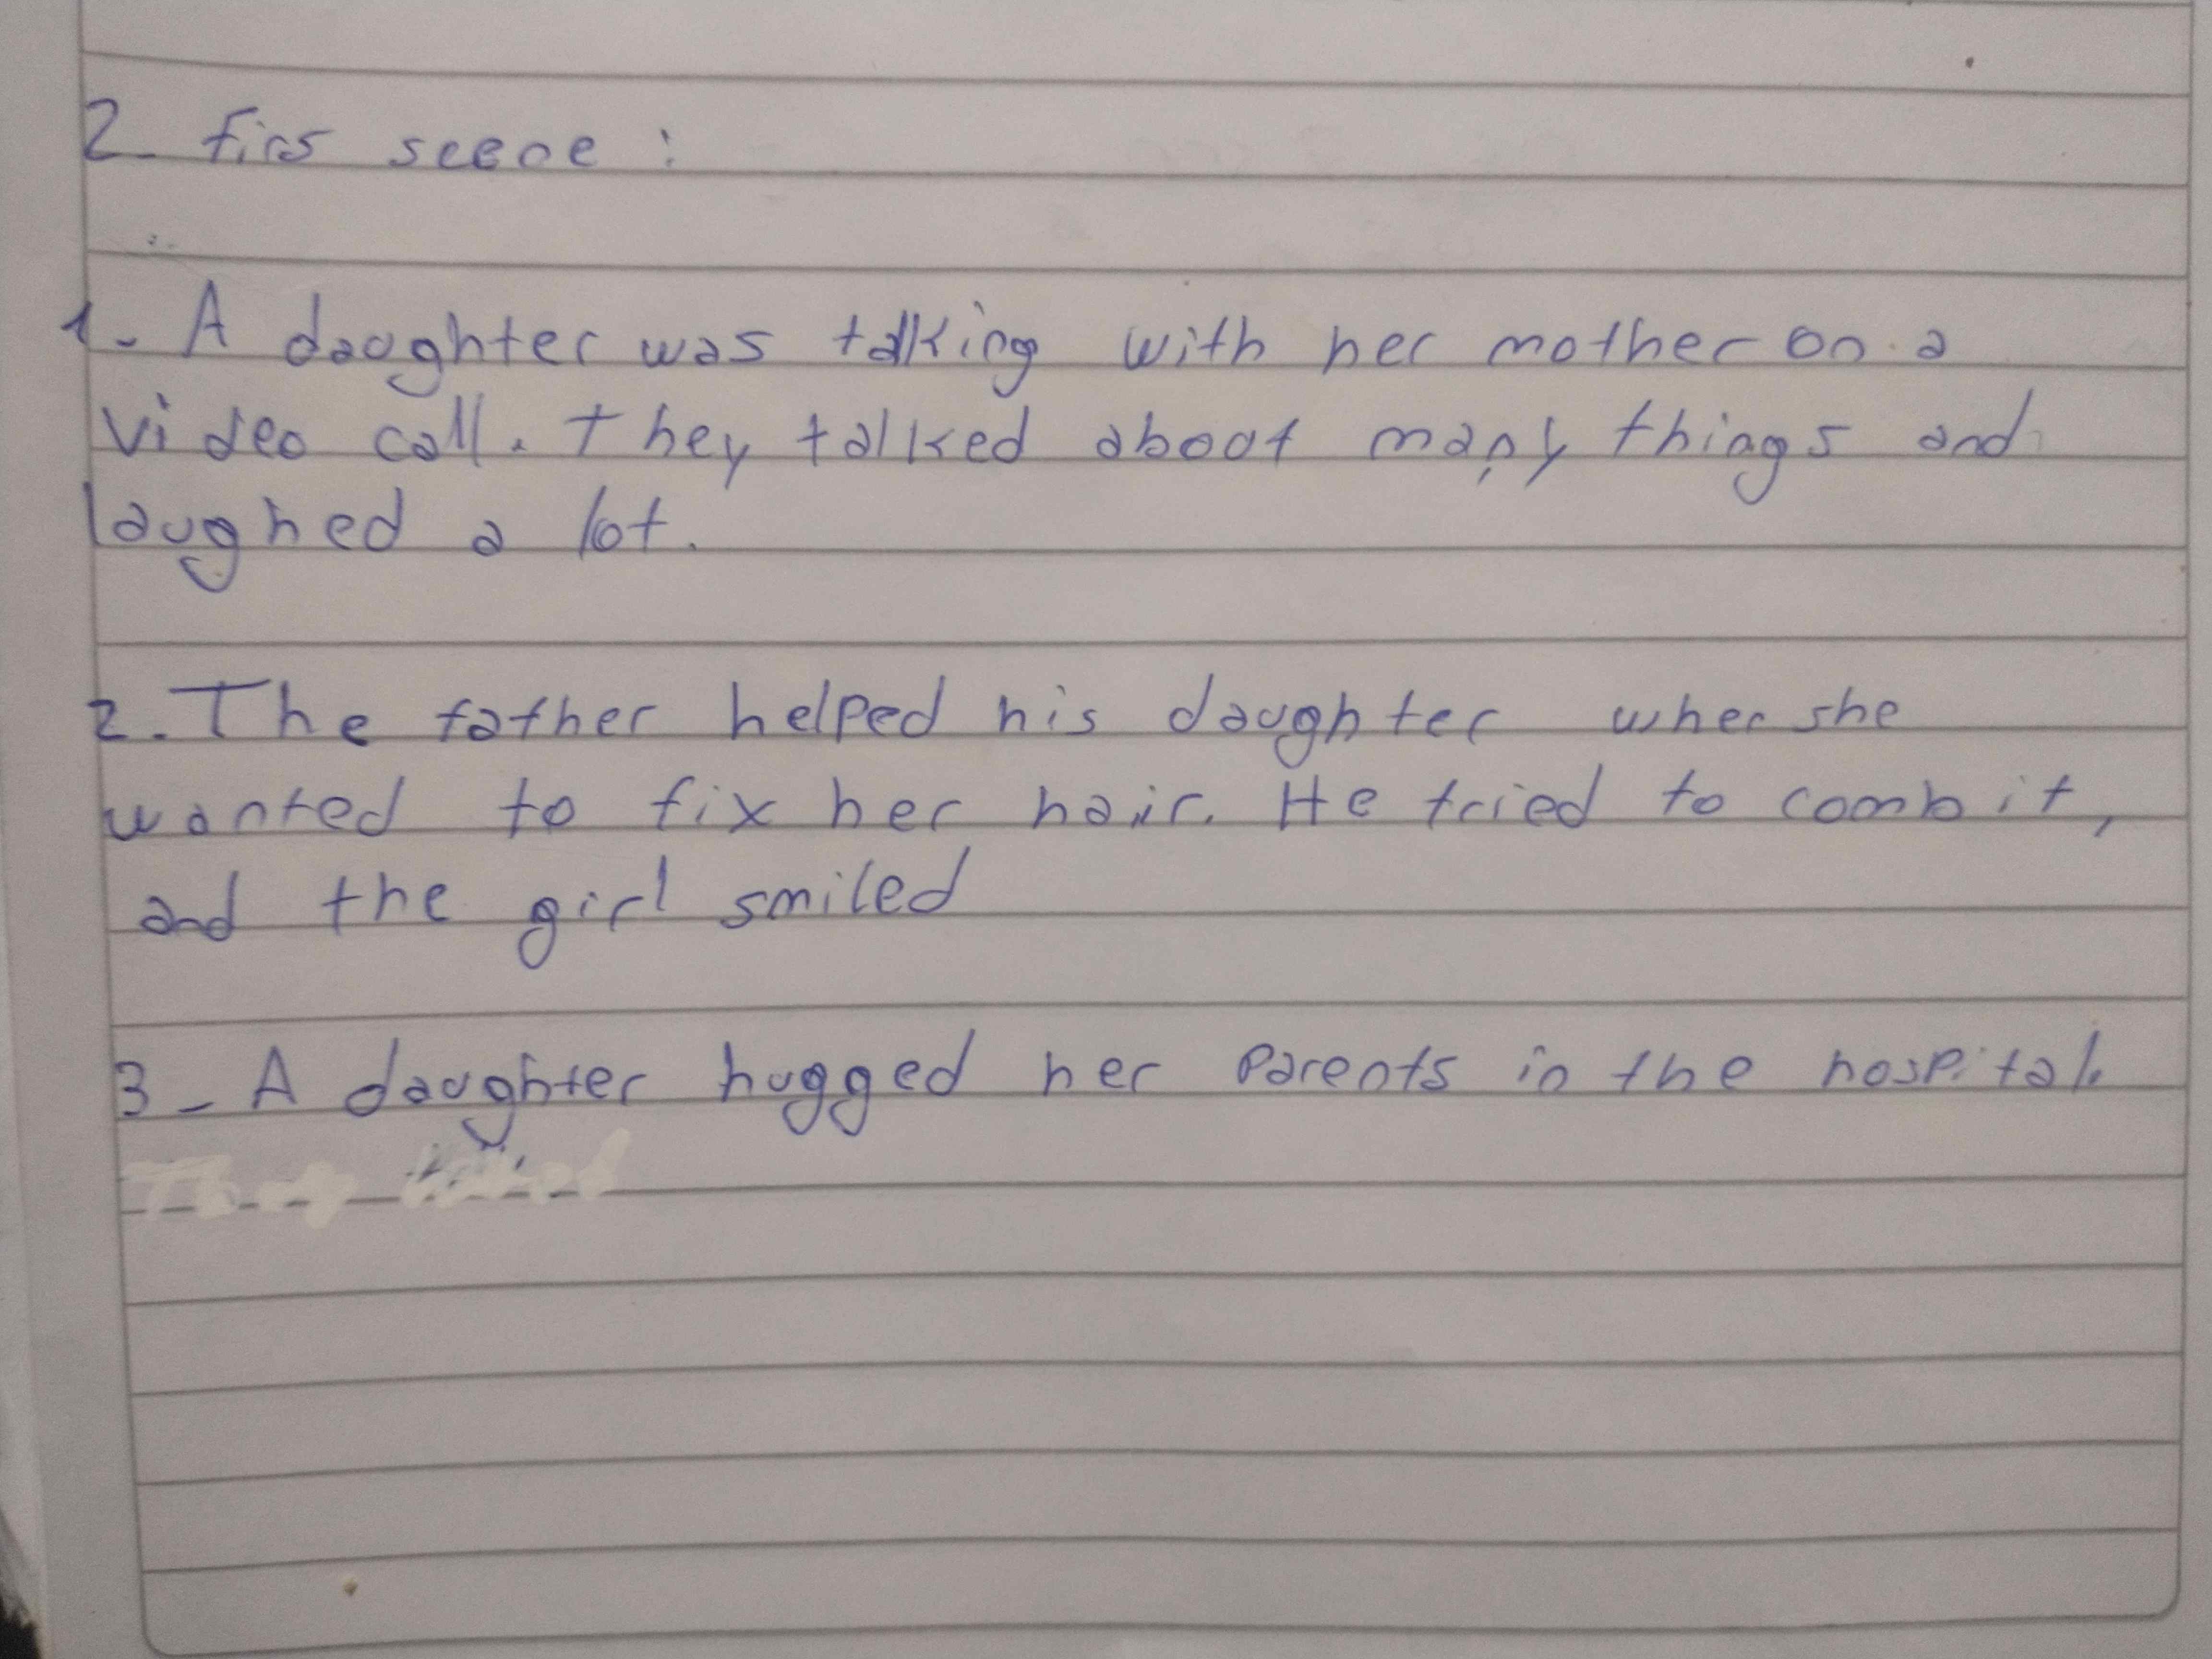 2- firs scene :
1- A daughter was talking with her mother on a
video call. They talked about many things and
laughed a lot.
2. The father helped his daughter when she
wanted to fix her hair. He tried to comb it,
and the girl smiled
3- A daughter hugged her parents in the hospital.